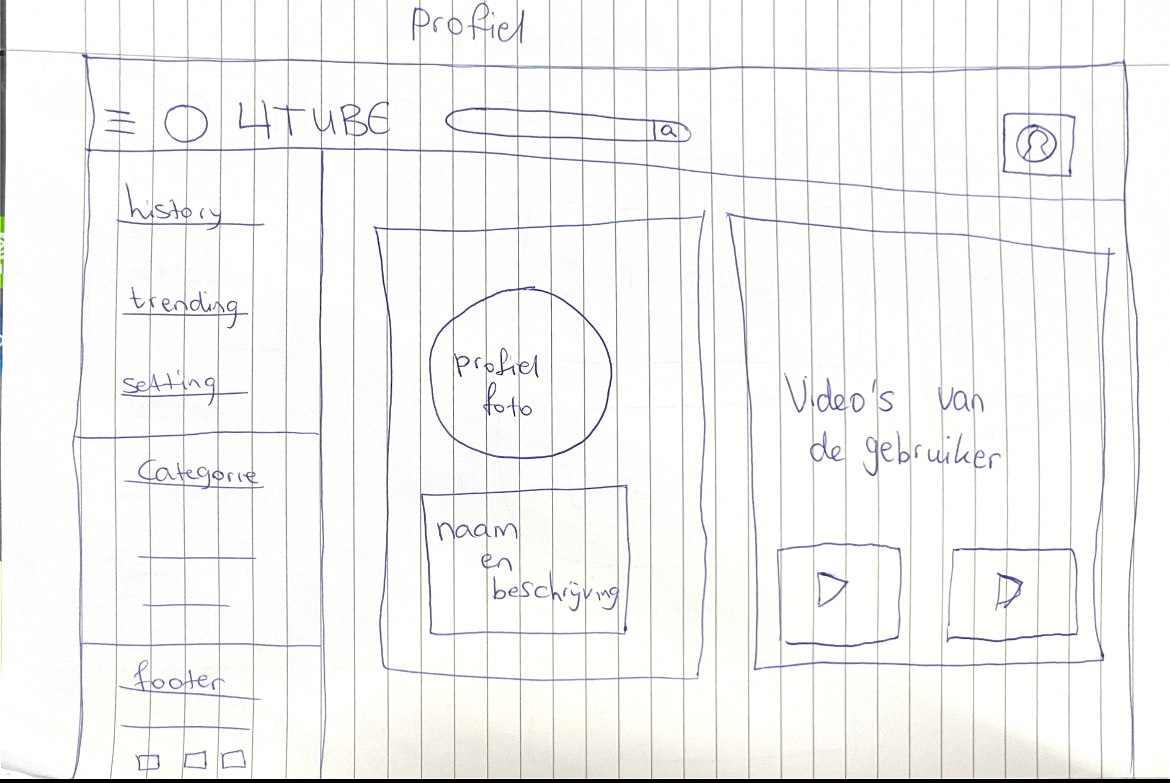 profiel
4TUBE
history
trending
setting
Categorie
footer
profiel
foto
naam
en
beschrijving
Video's van
de gebruiker